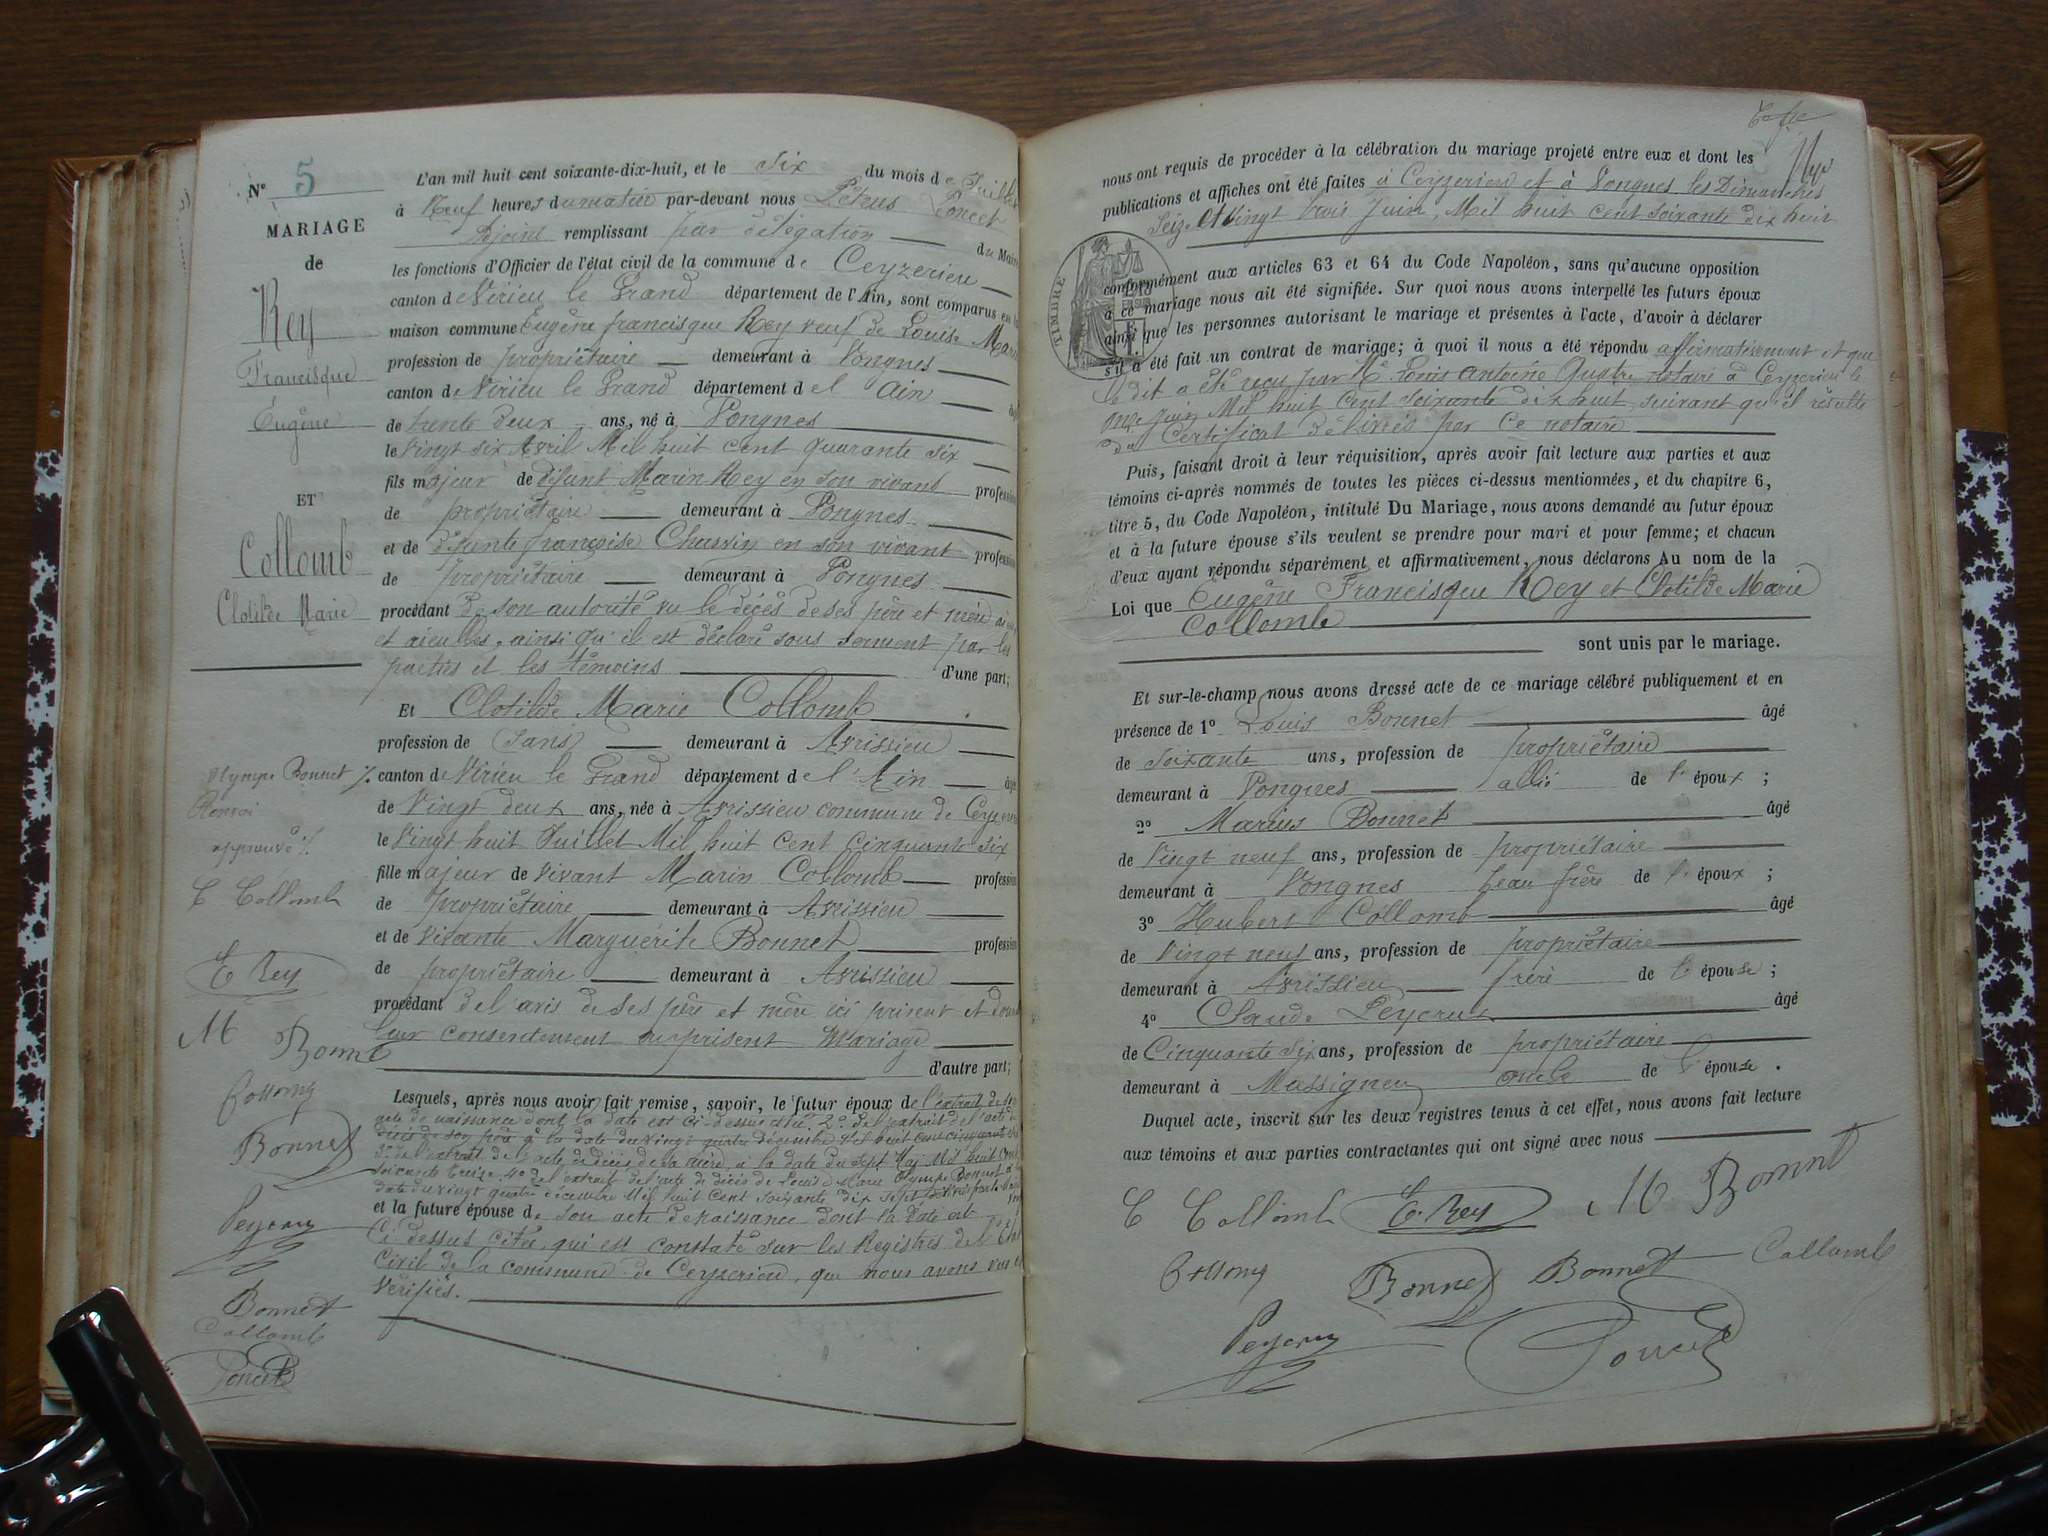 N° 5
MARIAGE
de
Rey
Francisque
Eugène
ET
Collomb
Clotilde Marie
L'an mil huit cent soixante-dix-huit, et le Six du mois de Juillet
à Neuf heures du matin par-devant nous Pétrus Poncet
Adjoint remplissant par délégation du Maire
les fonctions d'Officier de l'état civil de la commune de Ceyzerieu
canton de Virieu le Grand département de l'Ain, sont comparus en la
maison commune Eugène francisque Rey veuf de Louise Marie
profession de propriétaire demeurant à Vongnes
canton de Virieu le Grand département de l' Ain âgé
de trente deux ans, né à Vongnes
le Vingt six Avril Mil huit cent quarante six
fils majeur de défunt Marin Rey en son vivant profession
de propriétaire demeurant à Vongnes
et de défunte françoise Chassin en son vivant profession
de propriétaire demeurant à Vongnes
procédant de son autorité vu le décès de ses père et mère
et aïeulles, ainsi qu'il est déclaré sous serment par les
parties et les témoins d'une part;
Et Clotilde Marie Collomb
profession de (sans) demeurant à Avrissieu
canton de Virieu le Grand département de l'Ain âgé
de Vingt deux ans, née à Avrissieu commune de Ceyzerieu
le Vingt huit Juillet Mil huit cent cinquante six
fille majeur de vivant Marin Collomb profession
de propriétaire demeurant à Avrissieu
et de vivante Marguerite Bonnet profession
de propriétaire demeurant à Avrissieu
procédant de l'avis de ses père et mère ici présent et donnant
leur consentement au présent Mariage
d'autre part;
Lesquels, après nous avoir fait remise, savoir, le futur époux de l'extrait de son
acte de naissance dont la date est ci-dessus 2° de l'extrait de l'acte de
décès de son père à la date du vingt quatre décembre Mil huit cent cinquante
3° de l'extrait de l'acte de décès de sa mère, à la date du sept Mai Mil huit cent
soixante treize 4° de l'extrait de l'acte de décès de Louise Marie Olympe Bonnet à
date du vingt quatre décembre Mil huit cent soixante dix sept
et la future épouse de son acte de naissance dont la date est
Ci dessus citée, qui est constaté sur les Registres de l'État
Civil de la commune de Ceyzerieu, que nous avons vus et
Vérifiés.
Olympe Bonnet %
Renvoi
approuvé %
C Collomb
E Rey
M Bonnet
Collomb
Bonnet
Peycrus
Bonnet
Collomb
Poncet
nous ont requis de procéder à la célébration du mariage projeté entre eux et dont les
publications et affiches ont été faites à Ceyzerieu et à Vongnes les Dimanches
Seize et Vingt trois Juin, Mil huit cent soixante dix huit
TIMBRE
conformément aux articles 63 et 64 du Code Napoléon, sans qu'aucune opposition
à ce mariage nous ait été signifiée. Sur quoi nous avons interpellé les futurs époux
ainsi que les personnes autorisant le mariage et présentes à l'acte, d'avoir à déclarer
s'il a été fait un contrat de mariage; à quoi il nous a été répondu affirmativement et que
le dit a été reçu par Me Louis Antoine notaire à Ceyzerieu le
onze juin Mil huit cent soixante dix huit, suivant qu'il résulte
du Certificat délivré par ce notaire
Puis, faisant droit à leur réquisition, après avoir fait lecture aux parties et aux
témoins ci-après nommés de toutes les pièces ci-dessus mentionnées, et du chapitre 6,
titre 5, du Code Napoléon, intitulé Du Mariage, nous avons demandé au futur époux
et à la future épouse s'ils veulent se prendre pour mari et pour femme; et chacun
d'eux ayant répondu séparément et affirmativement, nous déclarons Au nom de la
Loi que Eugène Francisque Rey et Clotilde Marie
Collomb
sont unis par le mariage.
Et sur-le-champ nous avons dressé acte de ce mariage célébré publiquement et en
présence de 1° Louis Bonnet âgé
de soixante ans, profession de propriétaire
demeurant à Vongnes allié de l'époux;
2° Marius Bonnet âgé
de Vingt neuf ans, profession de propriétaire
demeurant à Vongnes beau frère de l'époux;
3° Hubert Collomb âgé
de Vingt neuf ans, profession de propriétaire
demeurant à Avrissieu frère de l'épouse;
4° Claude Peycrus âgé
de Cinquante six ans, profession de propriétaire
demeurant à Massignieu oncle de l'épouse.
Duquel acte, inscrit sur les deux registres tenus à cet effet, nous avons fait lecture
aux témoins et aux parties contractantes qui ont signé avec nous
C Collomb E. Rey M Bonnet
Collomb Bonnet Bonnet Collomb
Peycrus Poncet